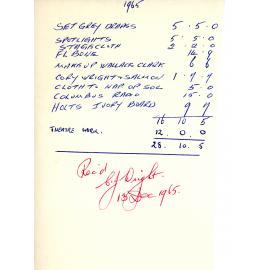 1965
SET GREY DRAPES 5.5.0
SPOTLIGHTS 5.5.0
STAGECLOTH 2.2.0
FL BONE 14.9
MAKEUP WALLACE CLARK 6.6
CORY WRIGHT & SALMON 1.7.7
CLOTH & NAP OF SOL 5.0
COLUMBUS RADIO 15.0
HOLTS IVORY BOARD 9.7
16 10 5
THEATRE 12.0.0
28.10.5
Rec'd
C J Wright.
13 Dec 1965.